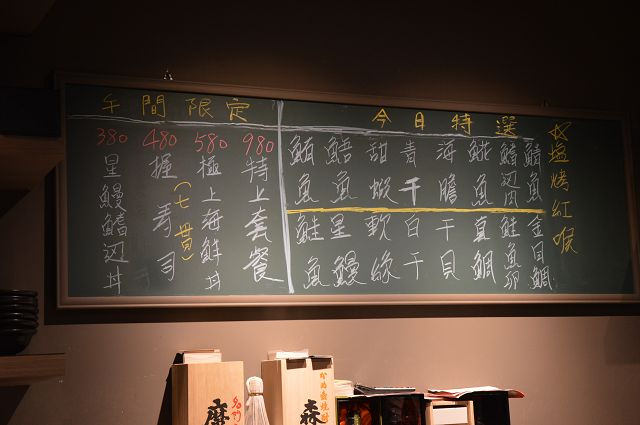 午間限定
今日特選
980 特上套餐
580 極上海鮮丼
480 握壽司(七貫)
380 星鰻鰭辺丼
鹽烤紅喉
鯖魚
鰭辺肉
鯡魚
海膽
青干
甜蝦
鮭魚
鮪魚
金目鯛
鮭魚卵
真鯛
干貝
白干
軟絲
星鰻
鮭魚
森